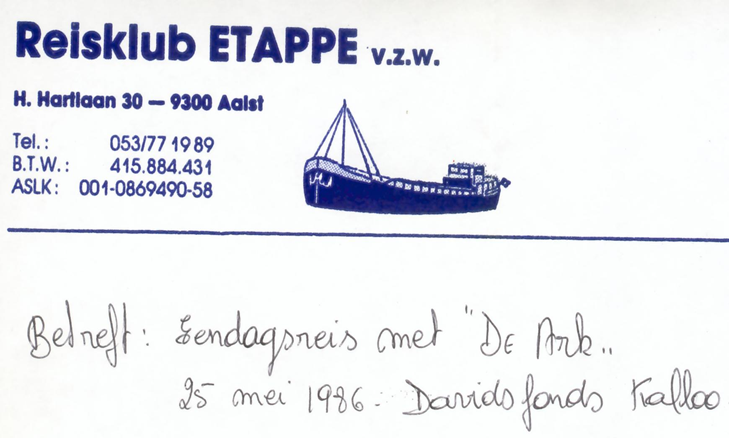 Reisklub ETAPPE v.z.w.
H. Hartlaan 30 — 9300 Aalst
Tel.: 053/77 19 89
B.T.W.: 415.884.431
ASLK: 001-0869490-58
Betreft: Eendagsreis met "De Ark„
25 mei 1986. Davidsfonds Kalloo